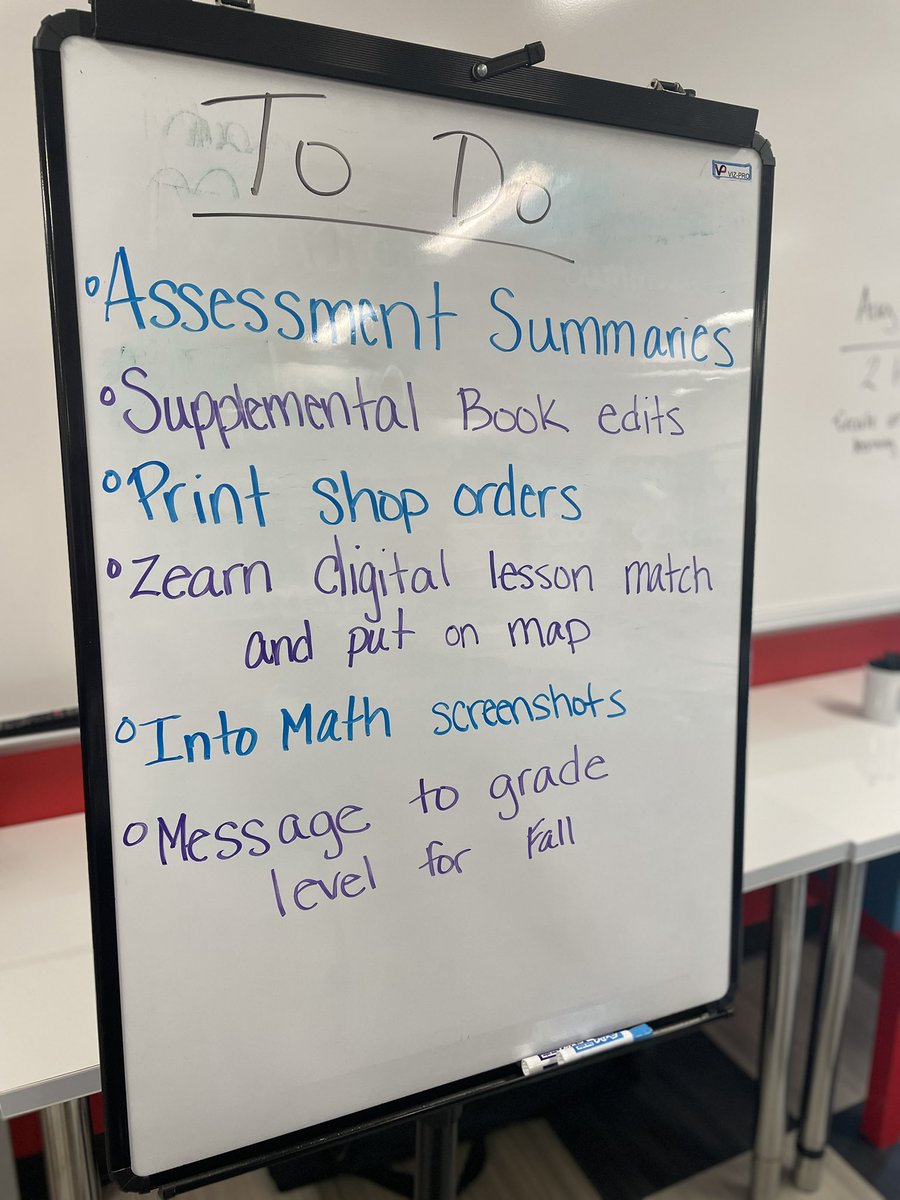 To Do
VIZ-PRO
Assessment Summaries
Supplemental Book edits
Print shop orders
Zearn digital lesson match
and put on map
Into Math screenshots
Message to grade
level for Fall